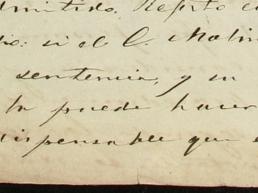 dmitido. Repito
si el C. Molin
sentencia, y su
la puede hacer
dispensable que